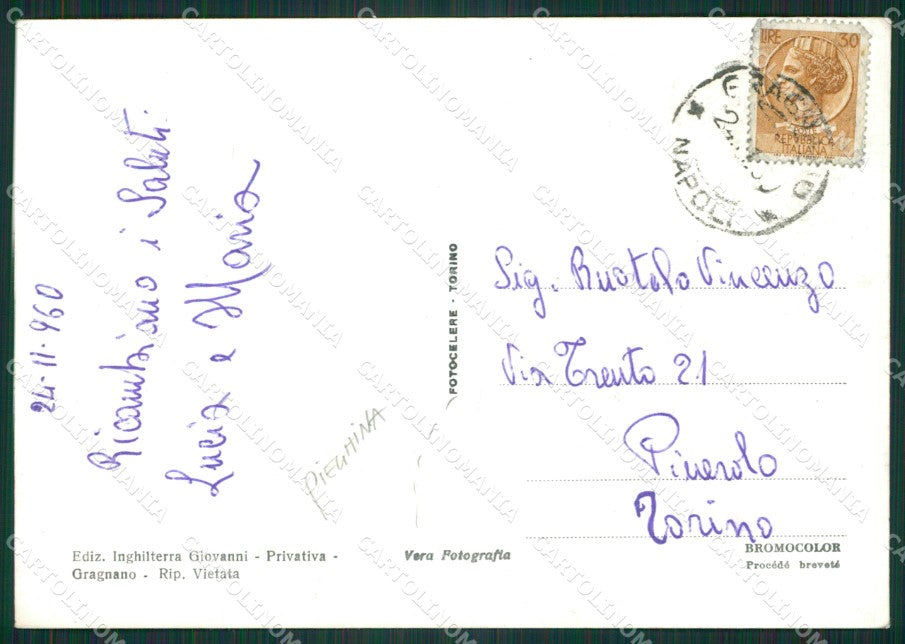 24-11-960
Ricambiamo i Saluti.
Lucia e Maria
PIEGHINA
Ediz. Inghilterra Giovanni - Privativa -
Gragnano - Rip. Vietata
Vera Fotografia
FOTOCELERE - TORINO
LIRE 30
POSTE
REPUBBLICA
ITALIANA
GRAGNANO
NAPOLI
Sig. Ruotolo Vincenzo
Via Trento 21
Pinerolo
Torino
BROMOCOLOR
Procédé breveté
CARTOLINOMANIA